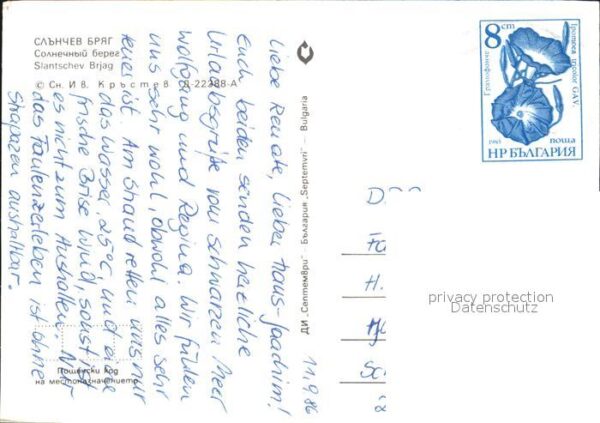 СЛЪНЧЕВ БРЯГ
Солнечный берег
Slantschev Brjag
© Сн. И в. Кръстев Д-22388-А
11.9.86
Liebe Renate, lieber Hans-Joachim!
Euch beiden senden herzliche
Urlaubsgrüße vom Schwarzen Meer
Wolfgang und Regina. Wir fühlen
uns sehr wohl, obwohl alles sehr
teuer ist. Am Strand retten uns nur
das Wasser, 25°C, und eine
frische Brise Wind, sonst ist
es nicht zum Aushalten. Nur
das Faulenzerleben ist ohne
Strapazen aushaltbar.
Пощенски код
на местоназначението
ДИ „Септември" - България „Septemvri" - Bulgaria
8 ст
Грамофонче
Ipomoea tricolor CAV.
1985
поща
НР БЪЛГАРИЯ
D
Fa
H.
Sc
privacy protection
Datenschutz